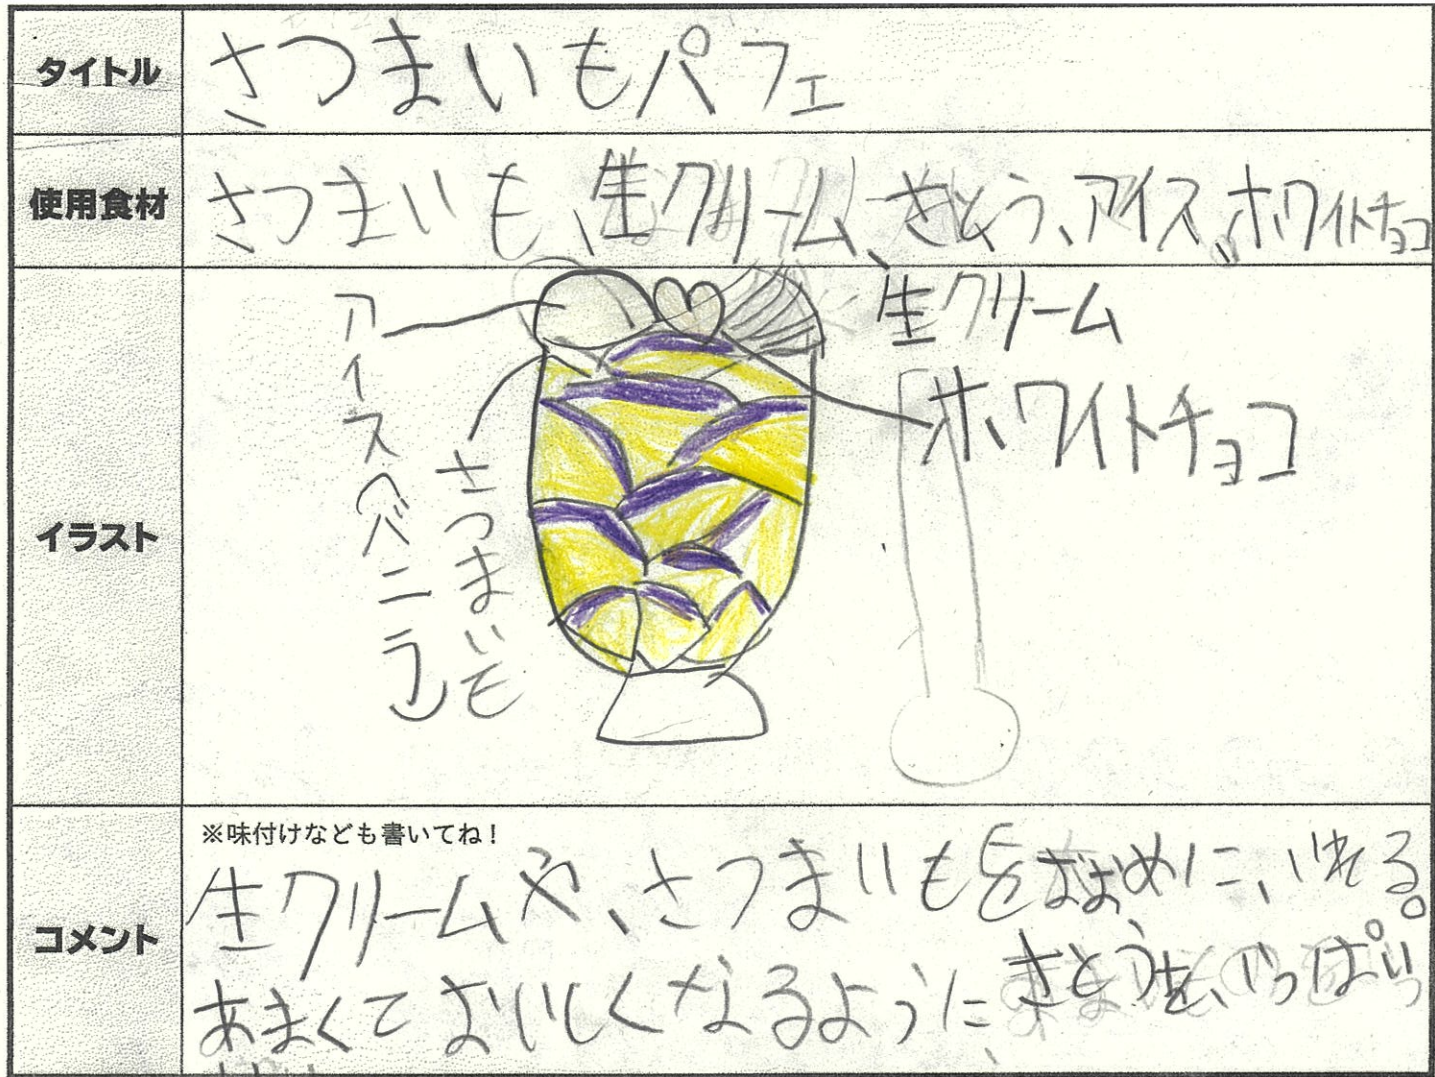 タイトル
さつまいもパフェ
使用食材
さつまいも、生クリーム、さとう、アイス、ホワイトチョコ
イラスト
アイスバニラ
さつまいも
生クリーム
ホワイトチョコ
コメント
※味付けなども書いてね！
生クリームや、さつまいもをおおめに、いれる。
あまくておいしくなるように、さとうを、いっぱい